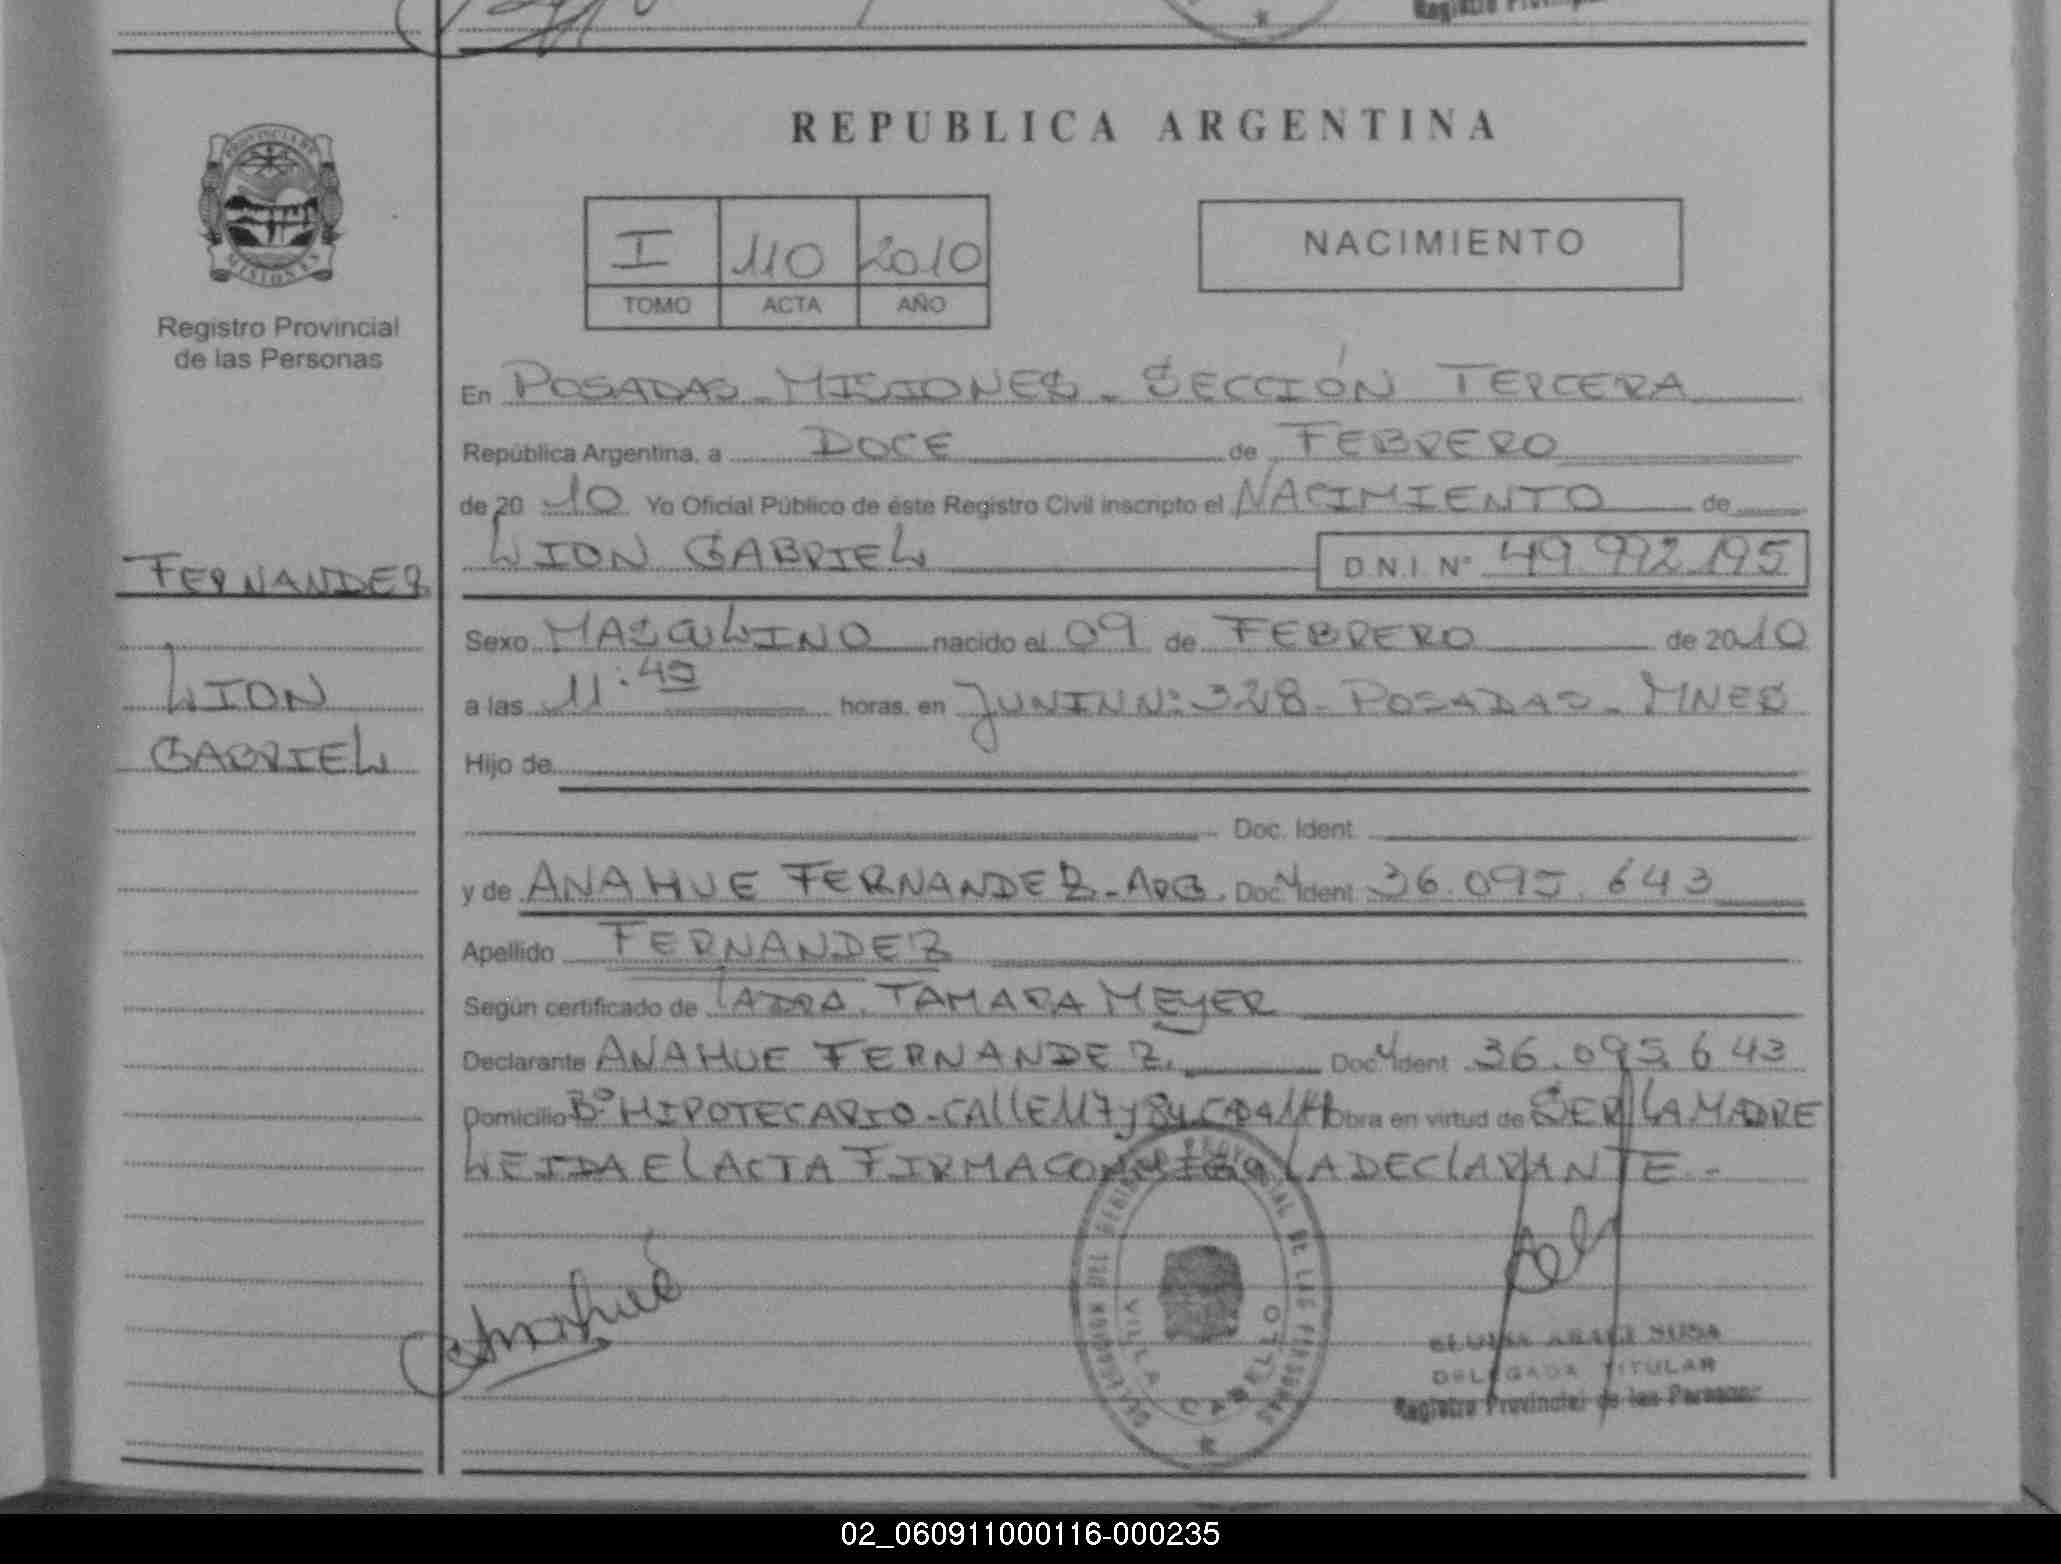 Registro Provincial
REPUBLICA ARGENTINA
PROVINCIA DE
MISIONES
Registro Provincial
de las Personas
I 110 2010
TOMO ACTA AÑO
NACIMIENTO
En POSADAS - MISIONES - SECCIÓN TERCERA
República Argentina, a DOCE de FEBRERO
de 20 10 Yo Oficial Público de éste Registro Civil inscripto el NACIMIENTO de
LION GABRIEL D.N.I. Nº 49.992.195
FERNANDEZ
LION
GABRIEL
Sexo MASCULINO nacido el 09 de FEBRERO de 2010
a las 11:45 horas, en JUNIN Nº 328 - POSADAS - MNES
Hijo de
Doc. Ident.
y de ANAHUE FERNANDEZ - ARG. Doc. Ident 36.095.643
Apellido FERNANDEZ
Según certificado de TAMARA MEYER
Declarante ANAHUE FERNANDEZ. Doc. Ident 36.095.643
Domicilio Bº HIPOTECARIO - CALLE 117 y 84 Obra en virtud de SER LA MADRE
LEIDA EL ACTA FIRMA CONMIGO LA DECLARANTE.-
Anahué
VILLA CABELLO
DELEGADA TITULAR
Registro Provincial de las Personas
02_060911000116-000235